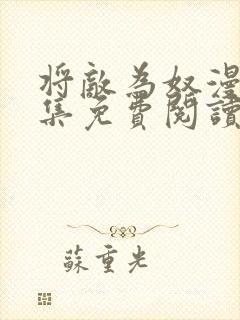 将敵為奴漫
集免費閱讀
蘇重光